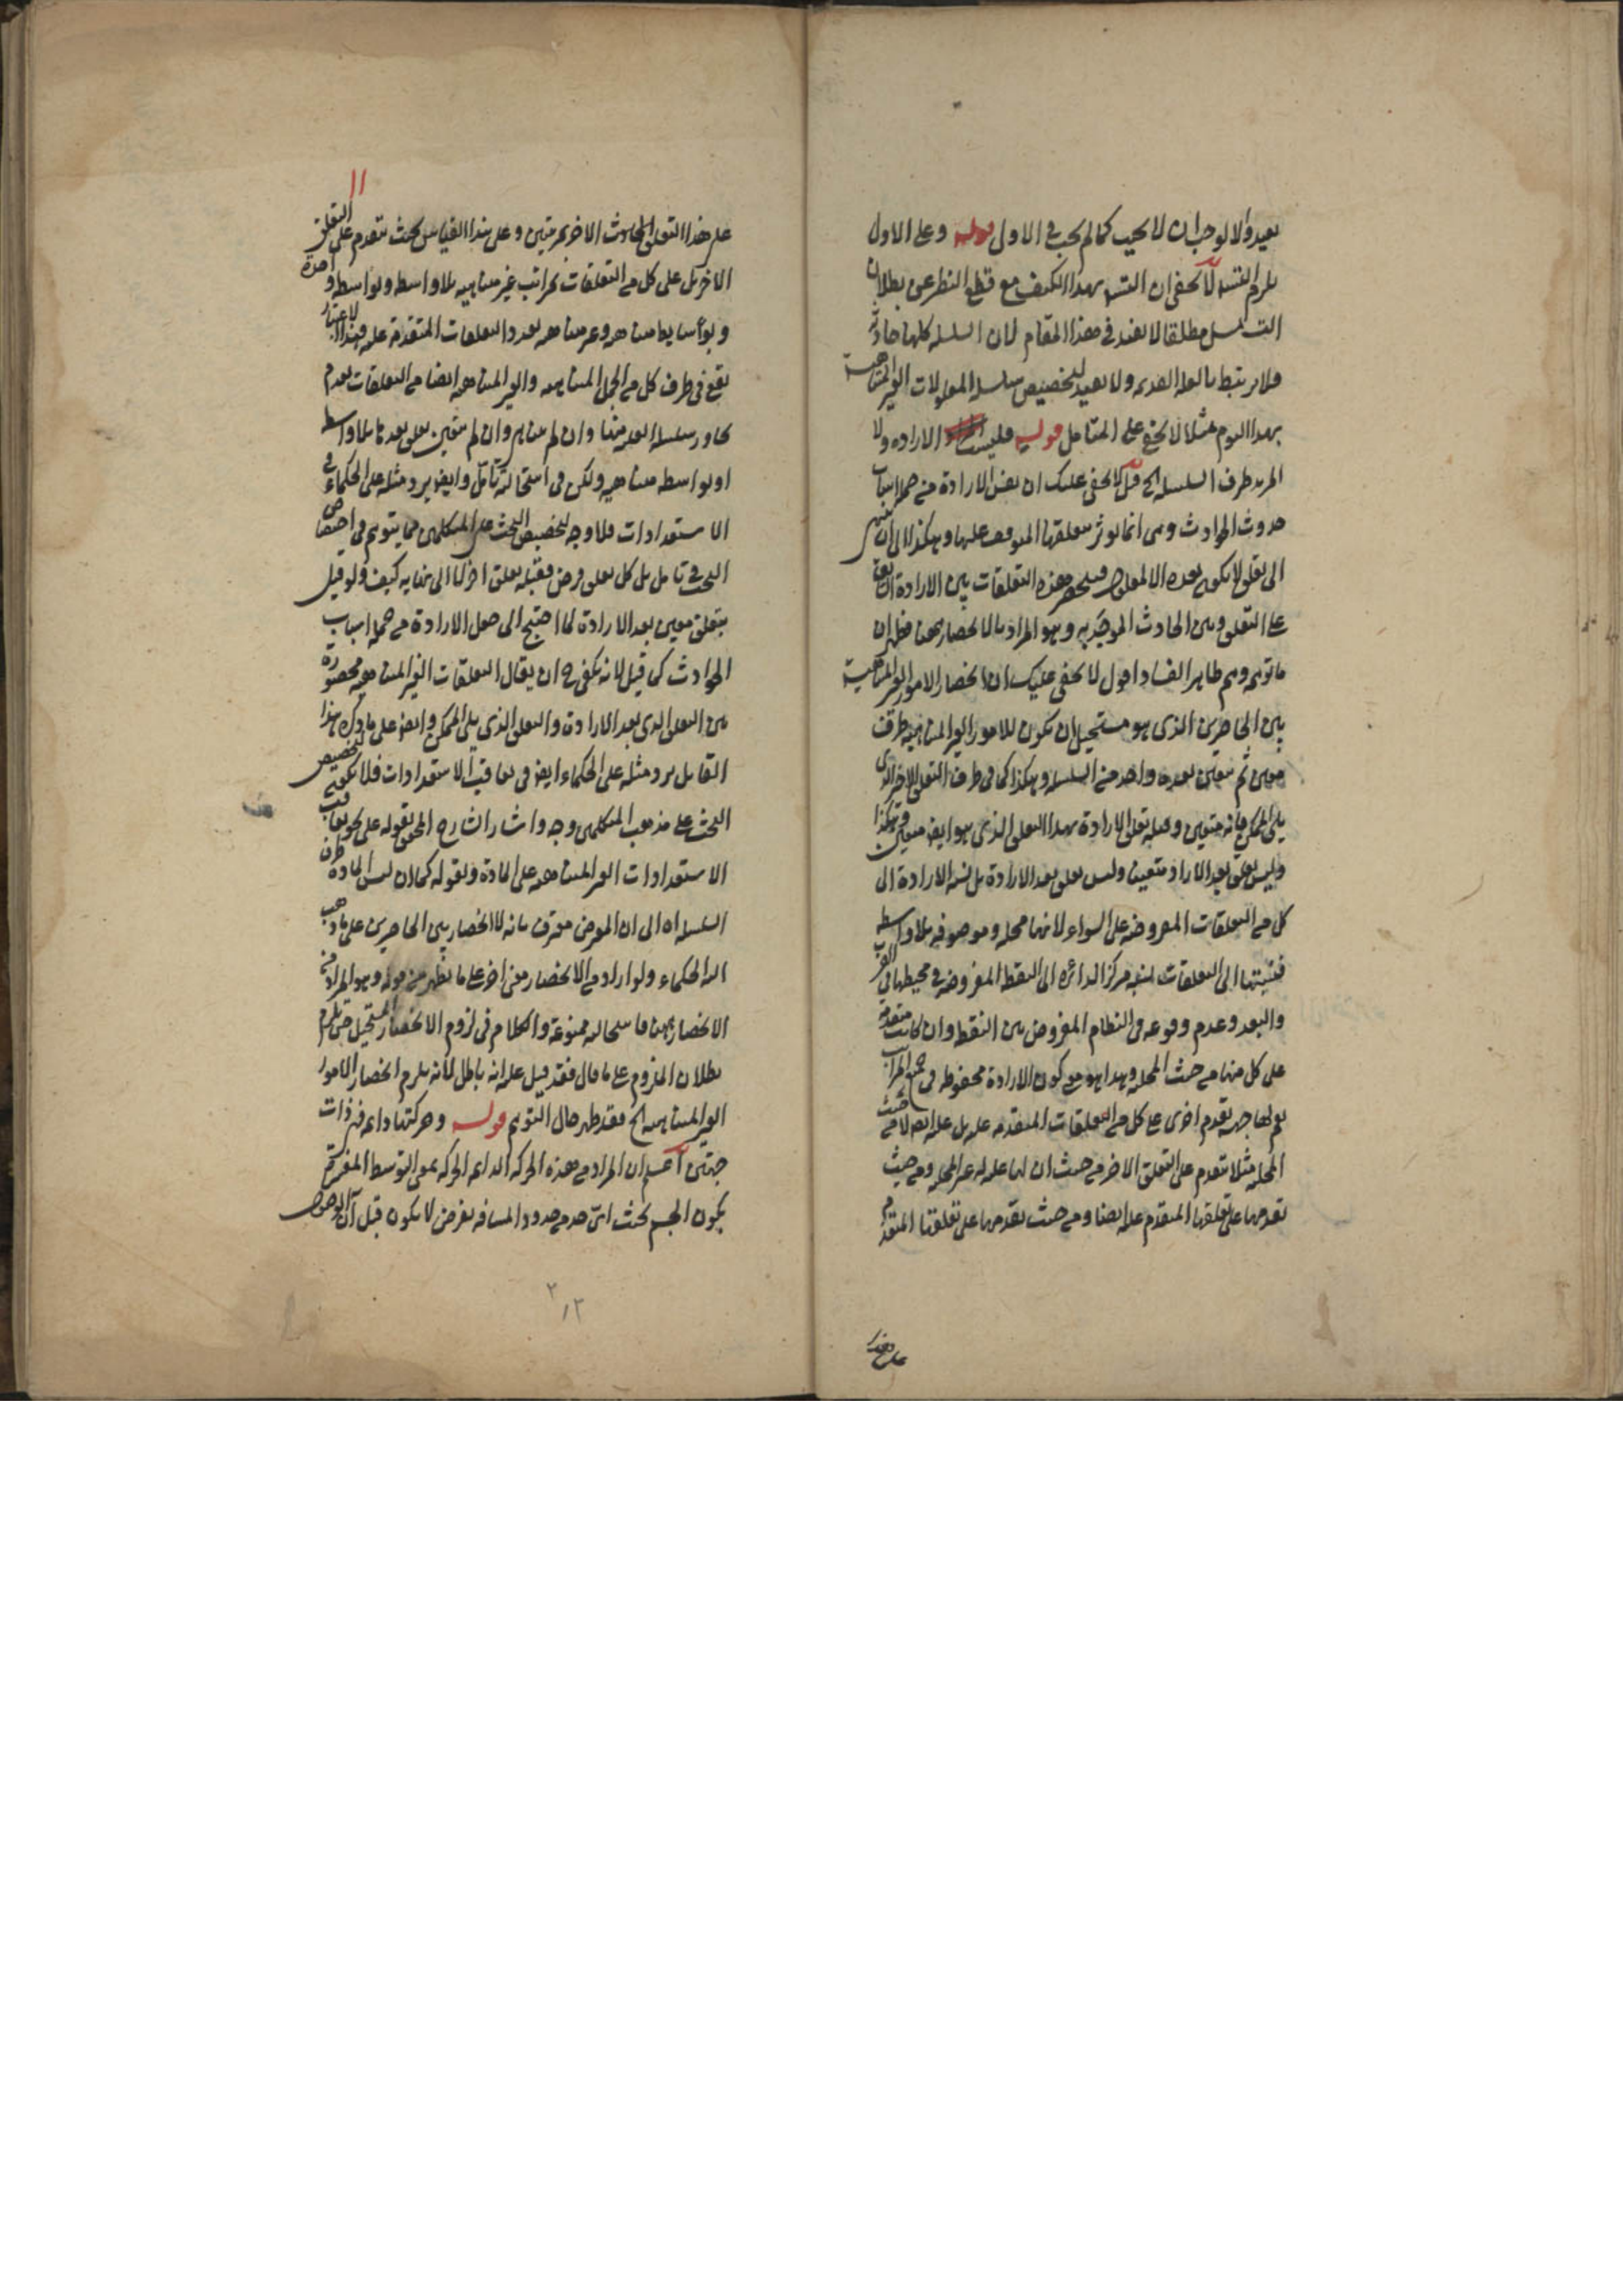 بعيد والا لوجب ان لا يجيب كما لم يجب في الاول قوله وعلى الاول
يلزم التسـ لا يخفى ان التسـ بهذا الكيف مع قطع النظر عن بطلان
التسلسل مطلقا لا يفيد في هذا المقام لان السلسلة كلها حادثة
فلا يرتبط بالعلة القديمة ولا بعيد لتخصيص سلسلة المعلولات الغير المتناهية
بهذا اليوم مثلا لا يخفى على المتأمل قوله فليست الارادة ولا
المريد طرف السلسلة الخ قيل لا يخفى عليك ان نفس الارادة من جملة اسباب
حدوث الحوادث وهي انما تؤثر بتعلقها الموقوف عليها وهكذا الى ان ينتهي
الى تعلق لا يكون بعده الا المعلول فينحصر هذه التعلقات بين الارادة
على التعلق وبين الحادث الموجد به وهو المراد بالانحصار ههنا فظهر ان
ما توهمه وهم ظاهر الفساد اقول لا يخفى عليك ان انحصار الامور الغير المتناهية
بين الحاصرين الذي هو مستحيل ان يكون للامور الغير المتناهية طرف
معين ثم يتعين بعده واحد من السلسلة وهكذا كما في طرف التعلق الاخر الذي
يلي الممكن فانه متعين وقبله تعلق الارادة بهذا التعلق الذي هو ايضا متعين وهكذا
وليس تعلق بعد الارادة متعينا وليس تعلق بعد الارادة بل نسبة الارادة الى
كل من التعلقات المفروضة على السواء لانها محله وموصوفه بلا واسطة
فنسبتها الى التعلقات كنسبة مركز الدائرة الى النقطة المفروضة في محيطها في القرب
والبعد وعدم وقوعه في النظام المفروض بين النقط وان كانت متقدمة
على كل منها من حيث المحلية وهذا هو معنى كون الارادة محفوظة في جميع المراتب
نعم لها جهة تقدم اخرى على كل من التعلقات المتقدمة عليه بل علة ايضا لا من حيث
المحلية مثلا يتقدم على التعلق الاخر من حيث ان لها علية له غير المحلية ومن حيث
تقدمها على تعلقها المتقدم عليه ايضا ومن حيث تقدمها على تعلقها المتقدم
على هذا
١١
على هذا التعلق الحادث الاخر بمرتبتين وعلى هذا القياس بحيث يتقدم على التعلق
الاخر بل على كل من التعلقات بمراتب غير متناهية بلا واسطة وبواسطة واحدة
وبوسايط متناهية وغير متناهية بعدد التعلقات المتقدمة عليه فبهذا الاعتبار
يقع في طرف كل من الجمل المتناهية والغير المتناهية ايضا من التعلقات بعدم
تجاوز سلسلة البعد منها وان لم يتناهى وان لم يتعين تعلق بعدها بلا واسطة
او بواسطة متناهية ولكن في استحالته تأمل وايضا يرد مثله على الحكماء في
الاستعدادات فلا وجه لتخصيص البحث على المتكلمين مما يتوهم في اختصاص
البحث تأمل بل كل تعلق فرض فقبله تعلق اخر لا الى نهاية كيف ولو قيل
بتعلق معين بعد الارادة لما احتيج الى جعل الارادة من جملة اسباب
الحوادث كما قيل لانه يكفي ح ان يقال التعلقات الغير المتناهية محصورة
بين التعلق الذي بعد الارادة والتعلق الذي يلي الممكن وايضا على ما ذكره هذا
القائل يرد مثله على الحكماء ايضا في تعاقب الاستعدادات فلا يكون لتخصيص
البحث على مذهب المتكلمين وجه واشار الشارح المحقق بقوله على نحو تعاقب
الاستعدادات الغير المتناهية على المادة وبقوله كما ان ليس المادة طرف
السلسلة اه الى ان المعترض معترف بانه لا انحصار بين الحاصرين على ما ذهب
اليه الحكماء ولو اراد من الانحصار معنى اخر على ما يظهر من قوله وهو المراد من
الانحصار ههنا فاستحالته ممنوعة والكلام في لزوم الانحصار المستحيل حتى يلزم
بطلان الملزوم على ما قال فقد قيل عليه انه باطل لانه يلزم انحصار الامور
الغير المتناهية الخ فقد ظهر حال التوهم قوله وحركتها دائمة ذات
جهتين اعلم ان المراد من هذه الحركة الدائمة الحركة بمعنى التوسط المفسرة
بكون الجسم بحيث اي حد من حدود المسافة يفرض لا يكون قبل آن الوصول